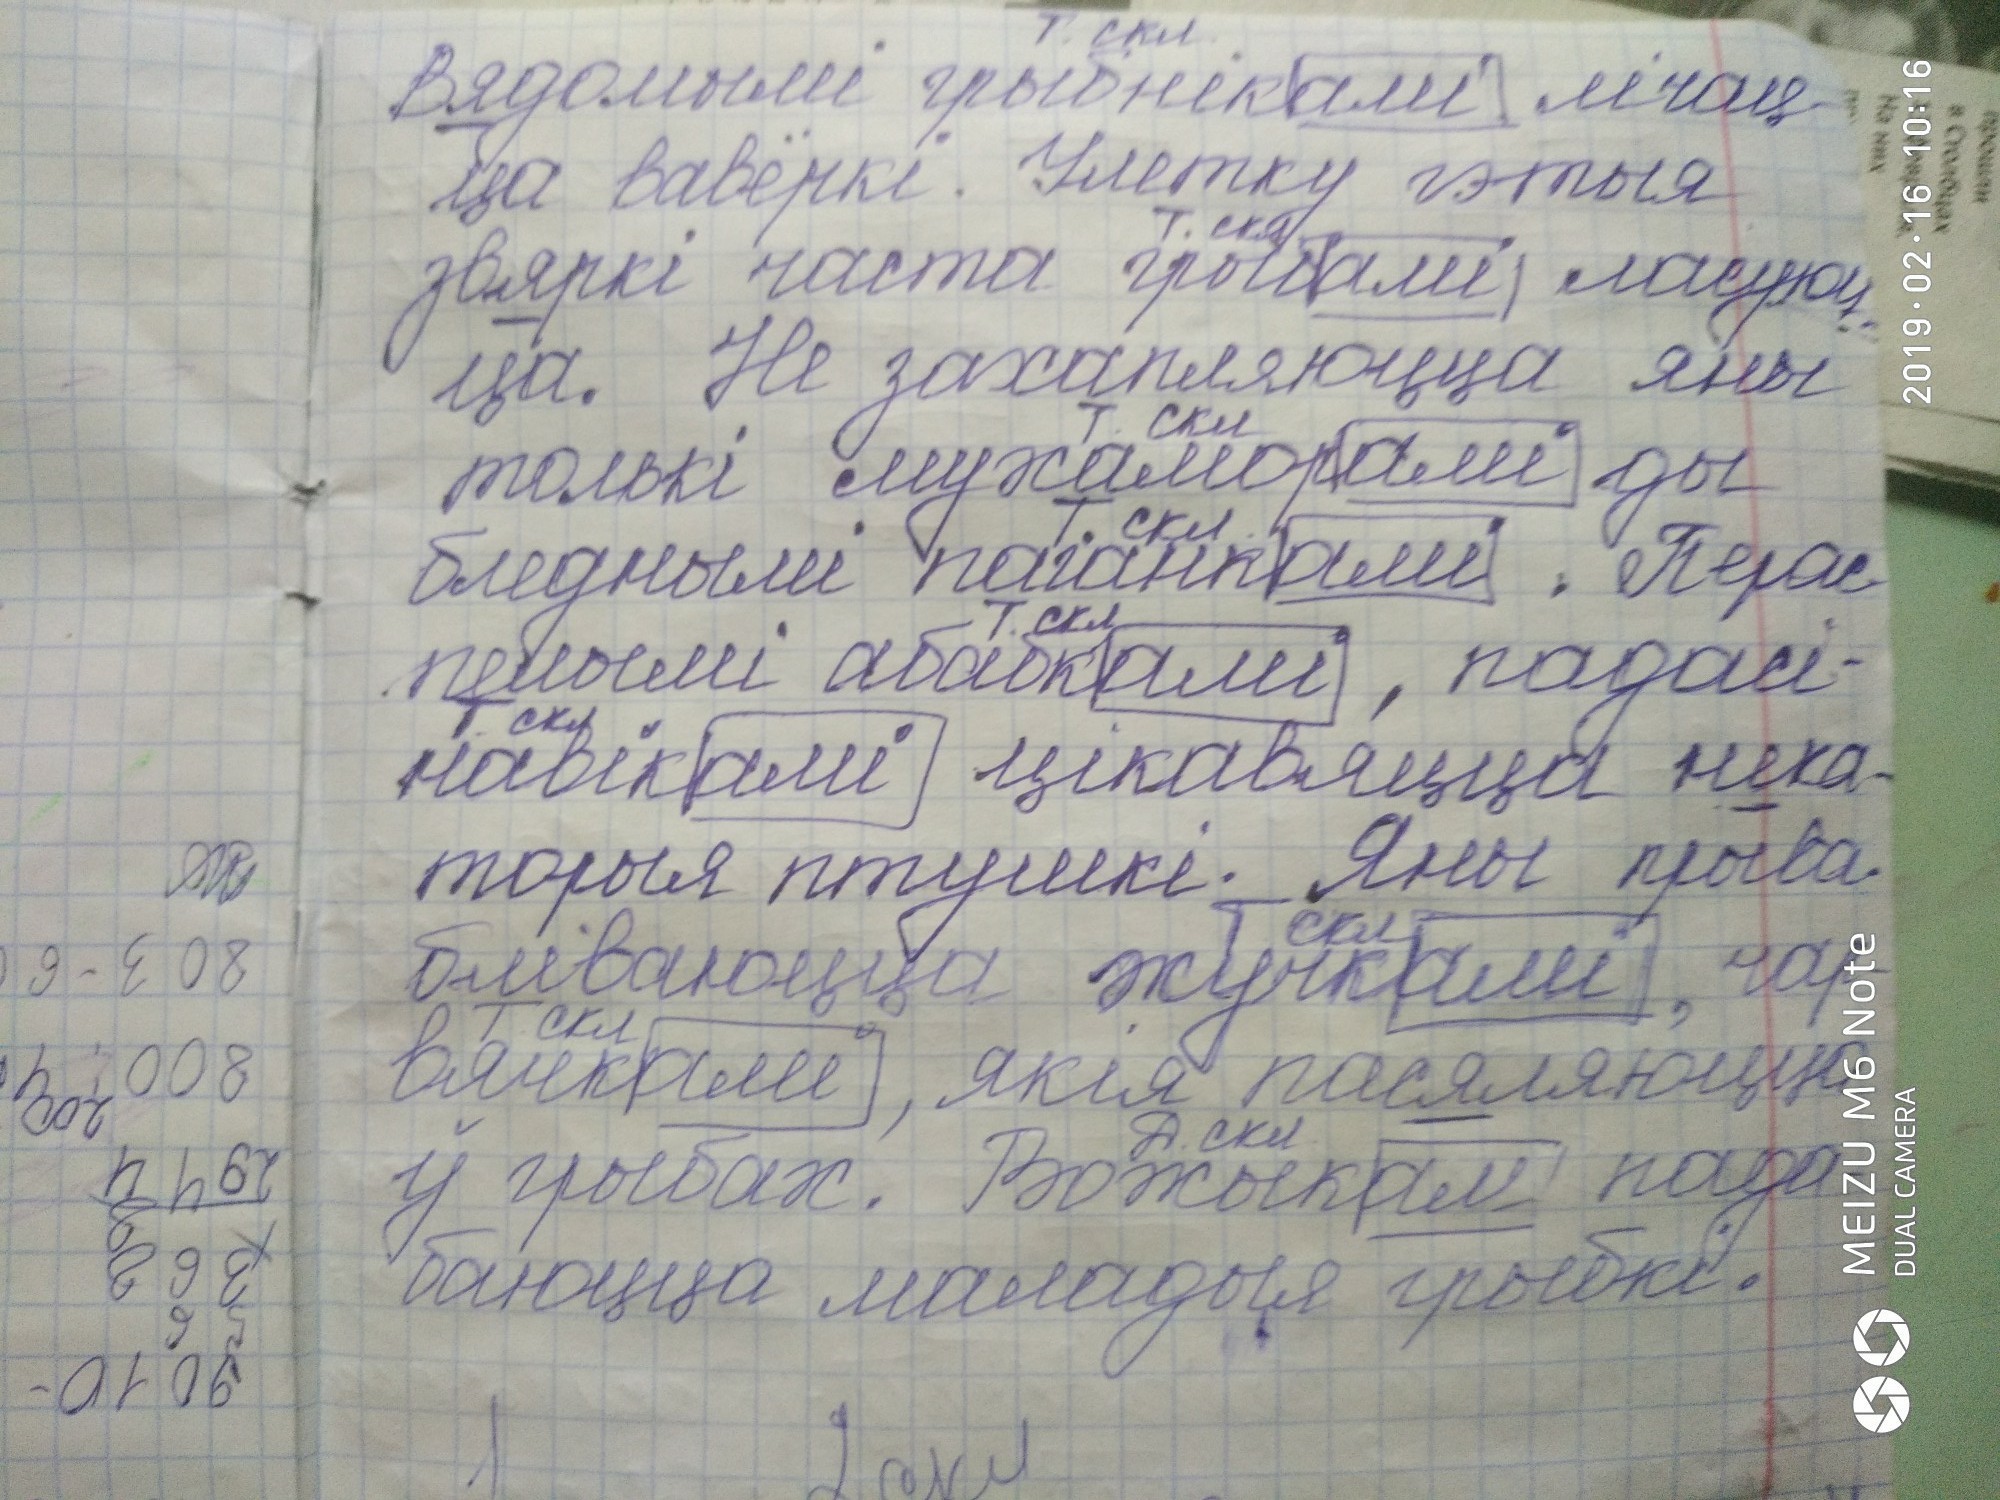 Т. скл.
Вядомымі грыбнікамі лічац-
ца вавёркі. Улетку гэтыя
Т. скл.
звяркі часта грыбамі ласуюц-
ца. Не захапляюцца яны
Т. скл
толькі мухаморамі ды
Т. скл.
бледнымі паганкамі. Перас
Т. скл
пелымі абабкамі, падасі-
Т. скл
навікамі цікавяцца нека-
торыя птушкі. Яны прыва-
Т скл
бліваюцца жучкамі, чар-
Т. скл
вячкамі, якія пасяляюцца
Д. скл.
ў грыбах. Вожыкам пада
баюцца маладыя грыбкі.
2 скл
803-6
800
204
294 4
90 10-
2019·02·16 10:16
MEIZU M6 Note
DUAL CAMERA